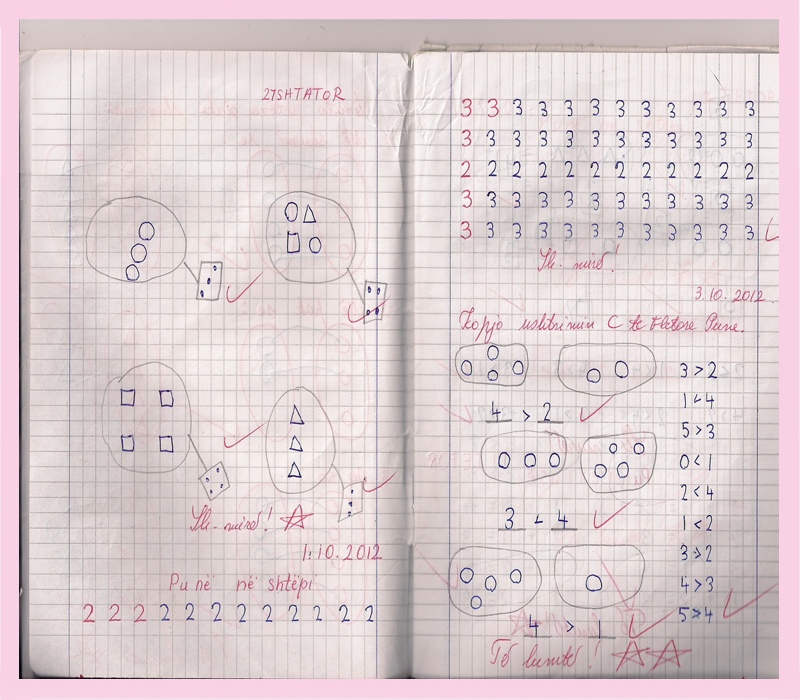 27SHTATOR
Sh. mirë!
1.10.2012
Punë në shtëpi
2 2 2 2 2 2 2 2 2 2 2 2
3 3 3 3 3 3 3 3 3 3 3 3
3 3 3 3 3 3 3 3 3 3 3 3
2 2 2 2 2 2 2 2 2 2 2 2
3 3 3 3 3 3 3 3 3 3 3 3
3 3 3 3 3 3 3 3 3 3 3 3
Sh. mirë!
3.10.2012.
Kopjo ushtrimin C të Fletore Pune.
4 > 2
3 < 4
4 > 1
3 > 2
1 < 4
5 > 3
0 < 1
2 < 4
1 < 2
3 > 2
4 > 3
5 > 4
Të lumtë!